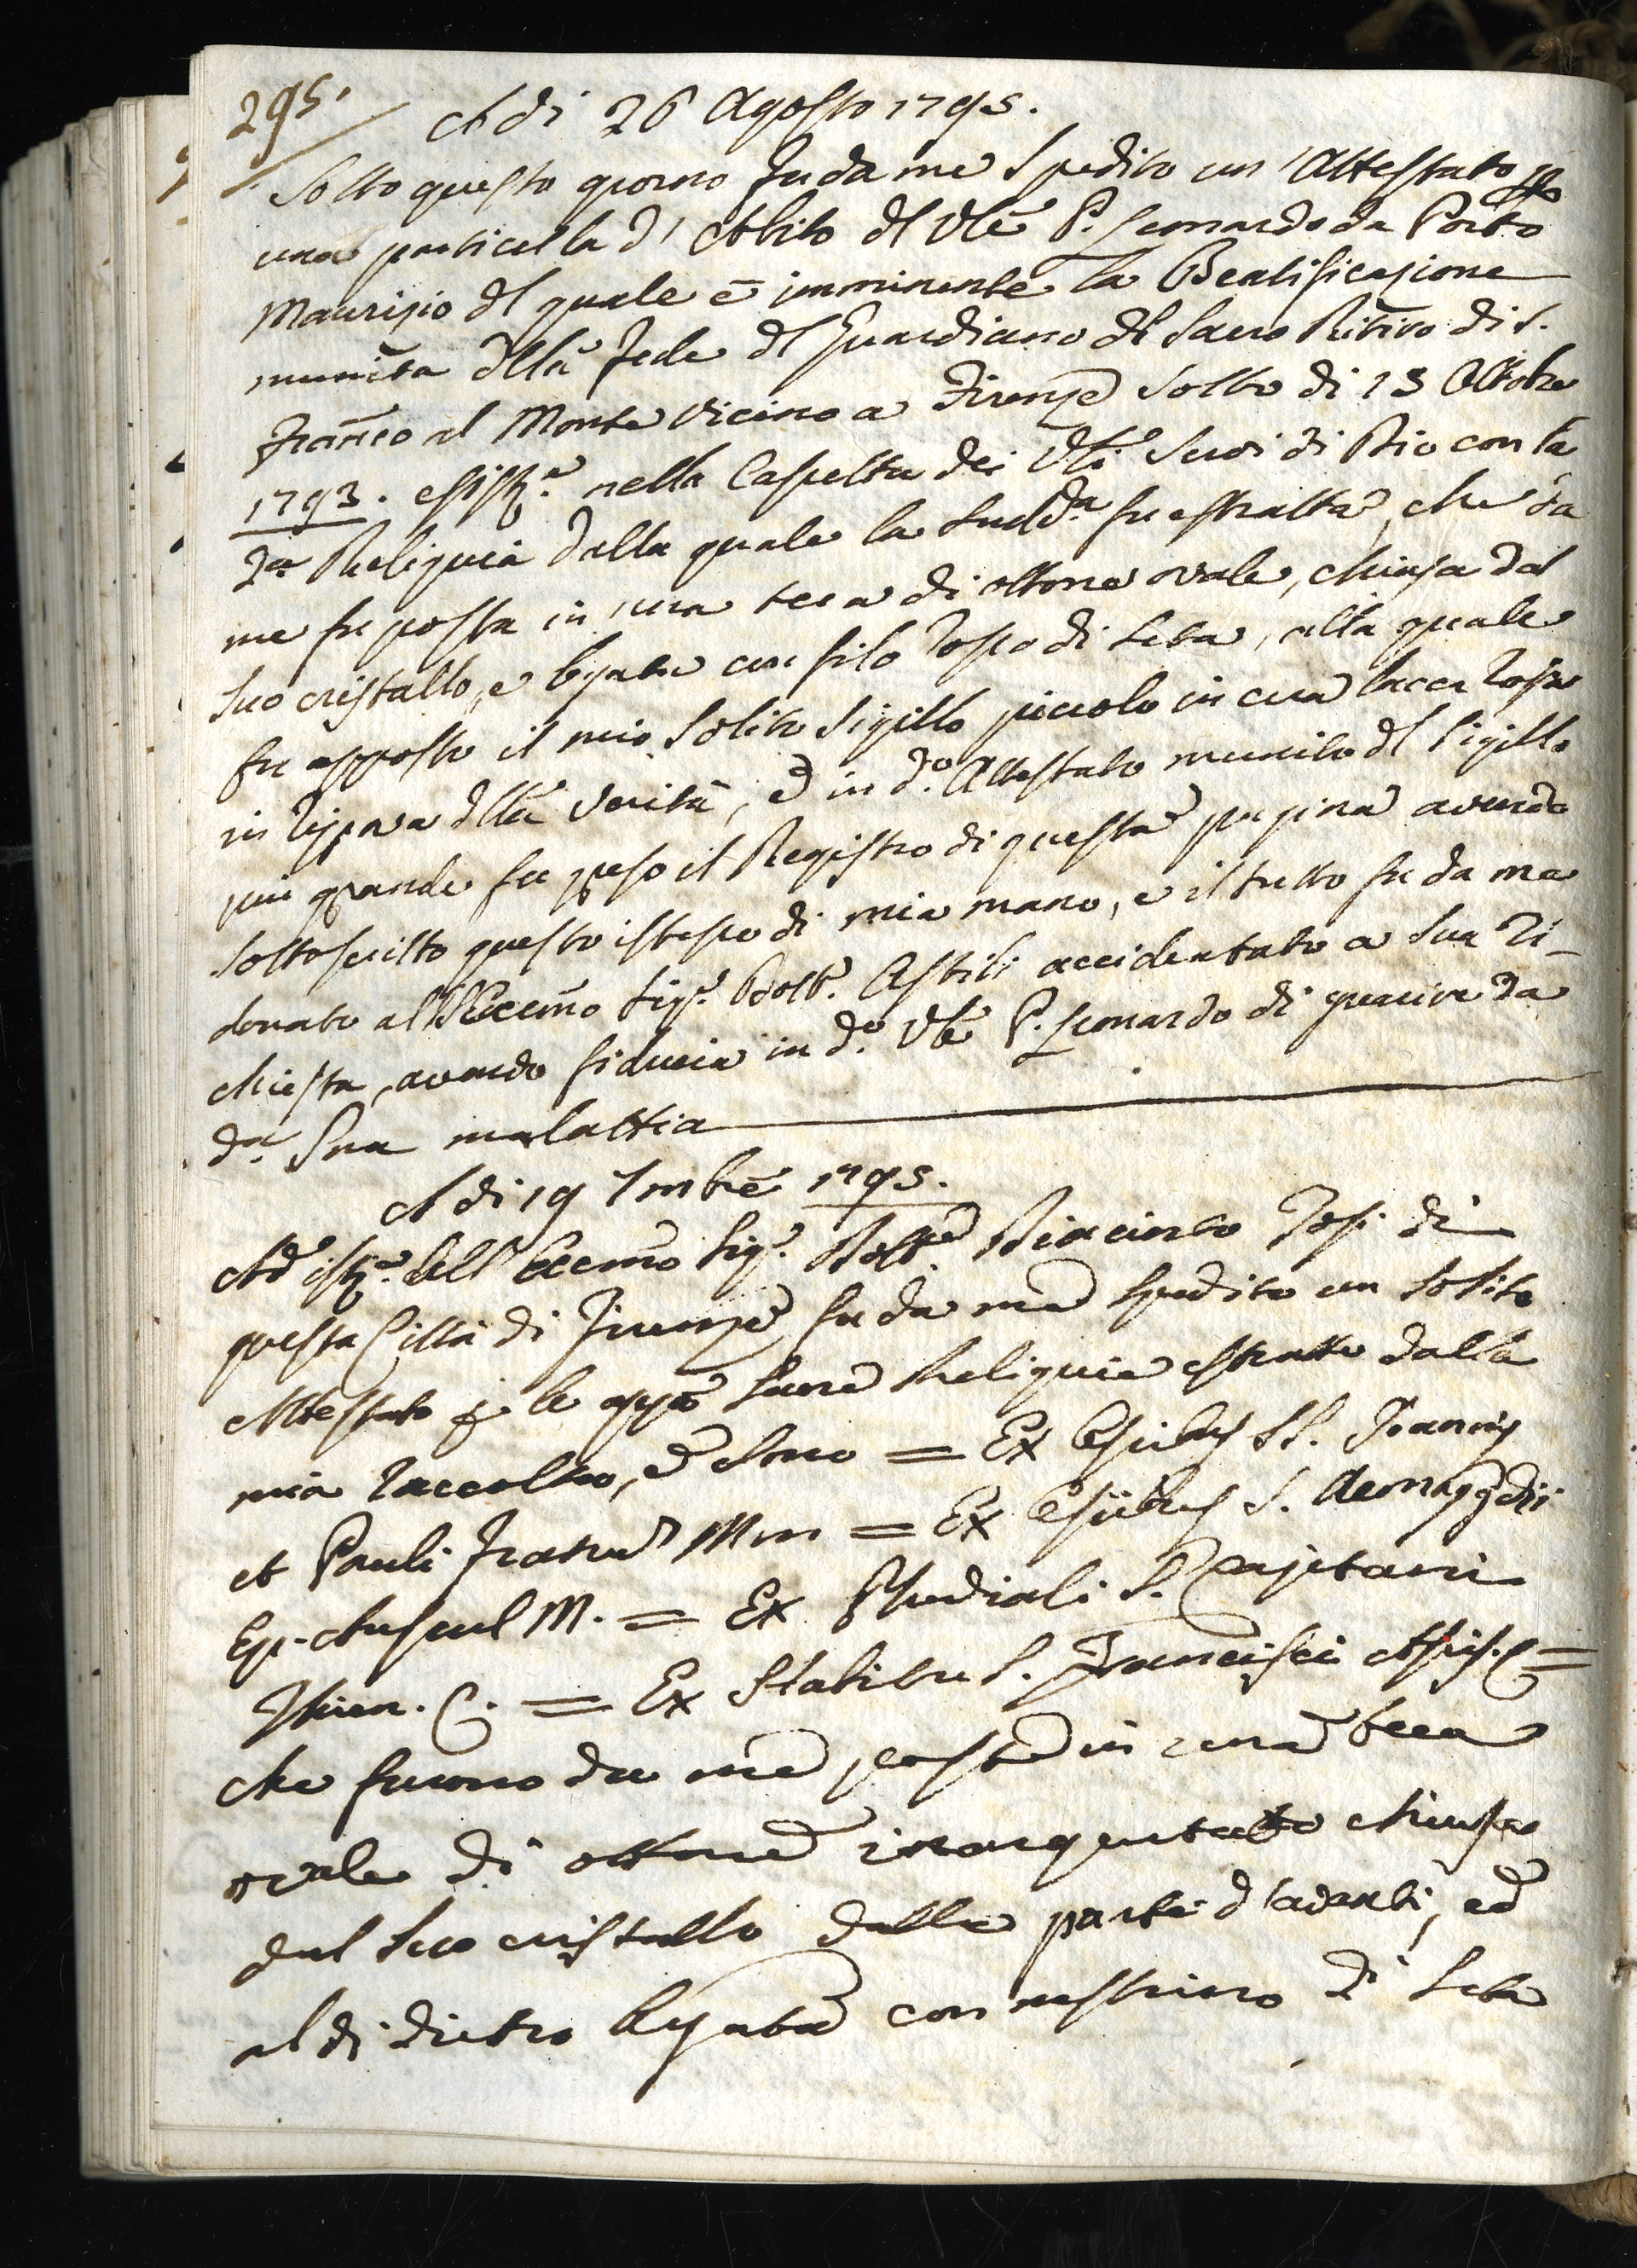 295.
A dì 26 Agosto 1795.
Sotto questo giorno fu da me spedito un' Attestato p
una particella d' Abito dl Vle P. Leonardo da Porto
Maurizio dl quale è imminente la Beatificazione
munita dlla fede dl Guardiano dl Sacro Ritiro di S.
Franco al Monte vicino a Firenze sotto dì 13 Ottobre
1793. esistte nella Cassetta dei Vli Servi di Dio con la
da Reliquia dalla quale la sudda fu estratta, che da
me fu posta in una teca di ottone ovale, chiusa dal
suo cristallo, e legata con filo rosso di seta, alla quale
fu apposto il mio solito sigillo piccolo in cera lacca rossa
in riprova dlla verità, e in do. Attestato munito dl sigillo
più grande fu preso il Registro di questa pagina avendo
sottoscritto questo istesso di mia mano, e il tutto fu da me
donato all' Eccmo Sigr. Dottr. Astili accidentato a sua ri-
chiesta, avendo fiducia in do. Vle P. Leonardo di guarire da
da. sua malattia
A dì 19 7mbre 1795.
Ad istza. dell' Eccmo Sigr. Dottre Giacinto Tosi di
questa Città di Firenze fu da me spedito un solito
Attestato p le appo Sacre Reliquie estratte dalla
mia raccolta, e sono = Ex Ossibus SS. Joannis
et Pauli Fratrum Mm = Ex Ossibus S. Aemygdii
Ep. Ascul M. = Ex Praecordiali S. Cajetani
Thien. C. = Ex Stabibu S. Francisci Assis. C =
che furono da me poste in una teca
ovale di ottone inargentato chiusa
dal suo cristallo dalla parte d'avanti, ed
al di dietro legata con nastrino di seta